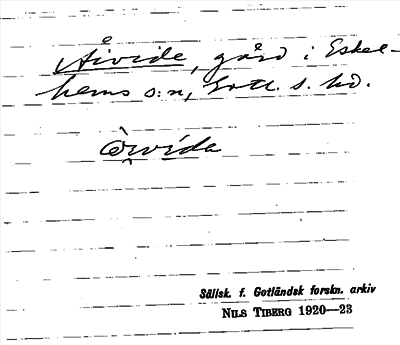 Åivide, gård i Eskel-
hems s:n, Gotl. s. hd.
Òi̯vida
Sällsk. f. Gotländsk forskn. arkiv
NILS TIBERG 1920—23